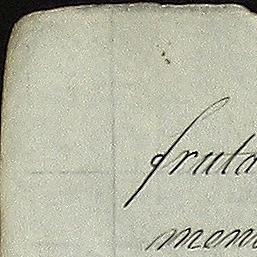 fruta
men